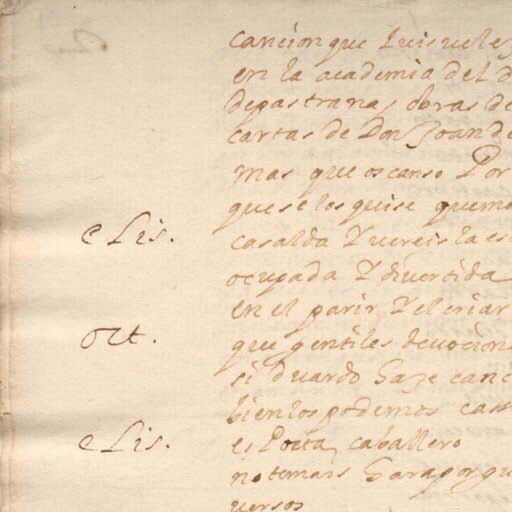 cancion que luis uelez
en la academia del d
de pastrana, obras de
cartas de Don Joan de
mas que os canso Por
que se los quise quema
eLis. casalda Y vereis la es
ocupada Y diuertida
en el parir, Y el criar
oct. que gentiles deuocion
si Duardo haze canc
bien los podemos cass
eLis. es Poeta, caballero
no temais hara porqu
versos